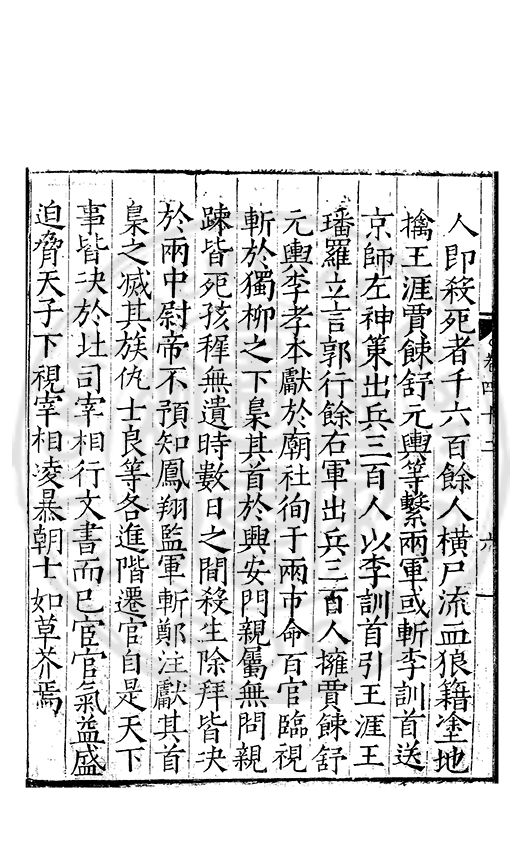 人即殺死者千六百餘人橫尸流血狼籍塗地
擒王涯賈餗舒元輿等繫兩軍或斬李訓首送
京師左神策出兵三百人以李訓首引王涯王
璠羅立言郭行餘右軍出兵三百人擁賈餗舒
元輿李孝本獻於廟社徇于兩市命百官臨視
斬於獨柳之下梟其首於興安門親屬無問親
踈皆死孩穉無遺時數日之間殺生除拜皆决
於兩中尉帝不預知鳳翔監軍斬鄭注獻其首
梟之滅其族仇士良等各進階遷官自是天下
事皆决於北司宰相行文書而已宦官氣益盛
迫脅天子下視宰相凌暴朝士如草芥焉
卷四十二
六